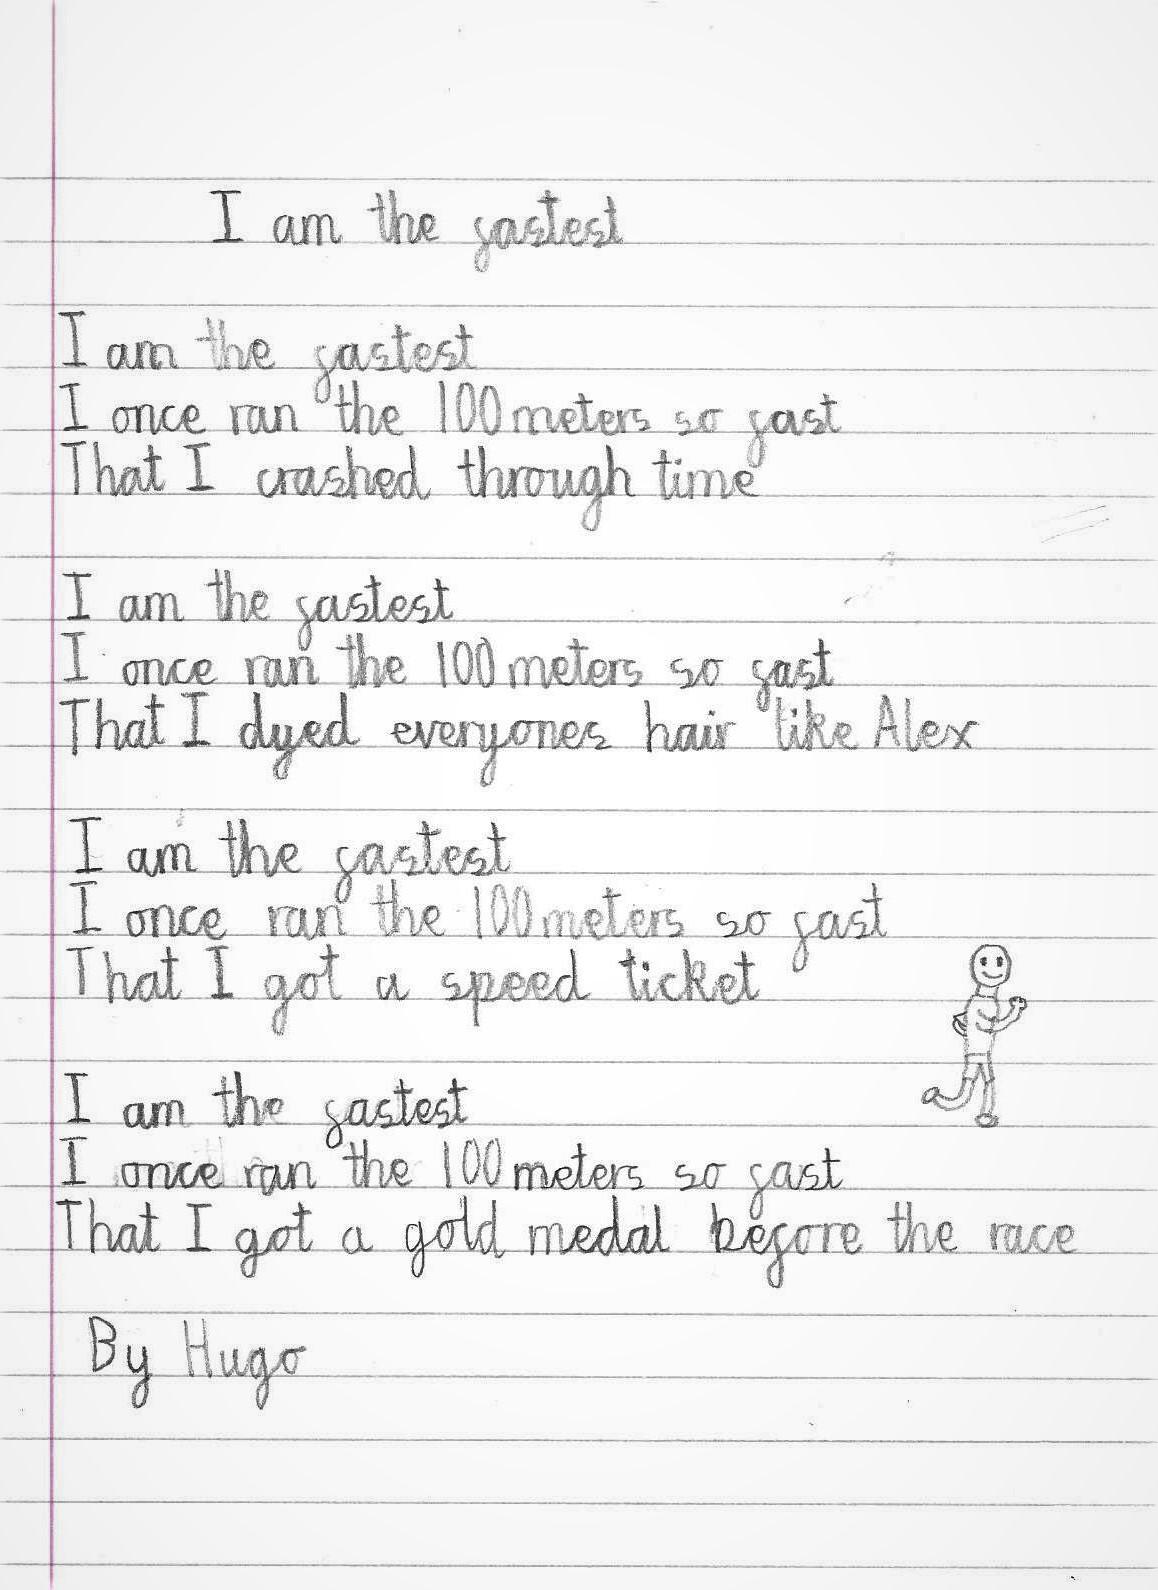 I am the fastest
I am the fastest
I once ran the 100 meters so fast
That I crashed through time
I am the fastest
I once ran the 100 meters so fast
That I dyed everyones hair like Alex
I am the fastest
I once ran the 100 meters so fast
That I got a speed ticket
I am the fastest
I once ran the 100 meters so fast
That I got a gold medal before the race
By Hugo